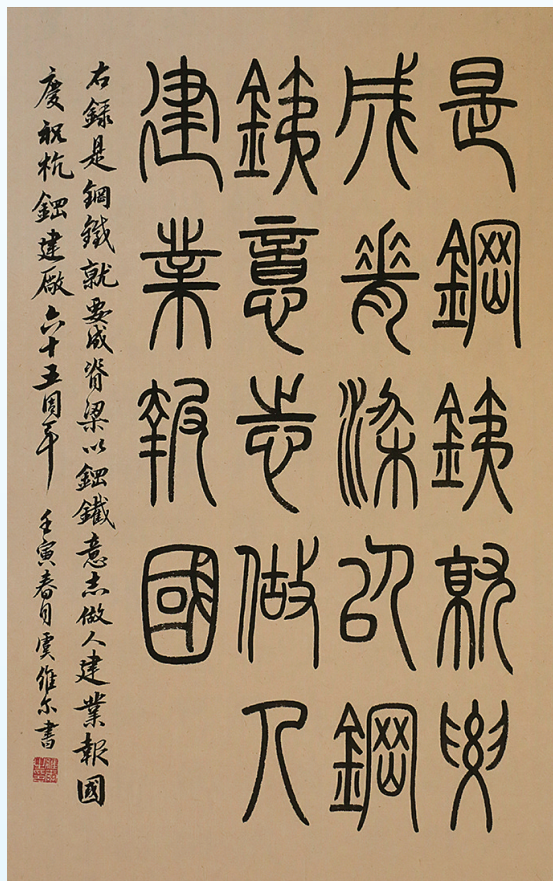 是鋼銕就要
成脊梁以鋼
銕意志做人
建業報國
右録是鋼鐵就要成脊梁以鋼鐵意志做人建業報國
慶祝杭鋼建廠六十五周年 壬寅春月虞維尔書